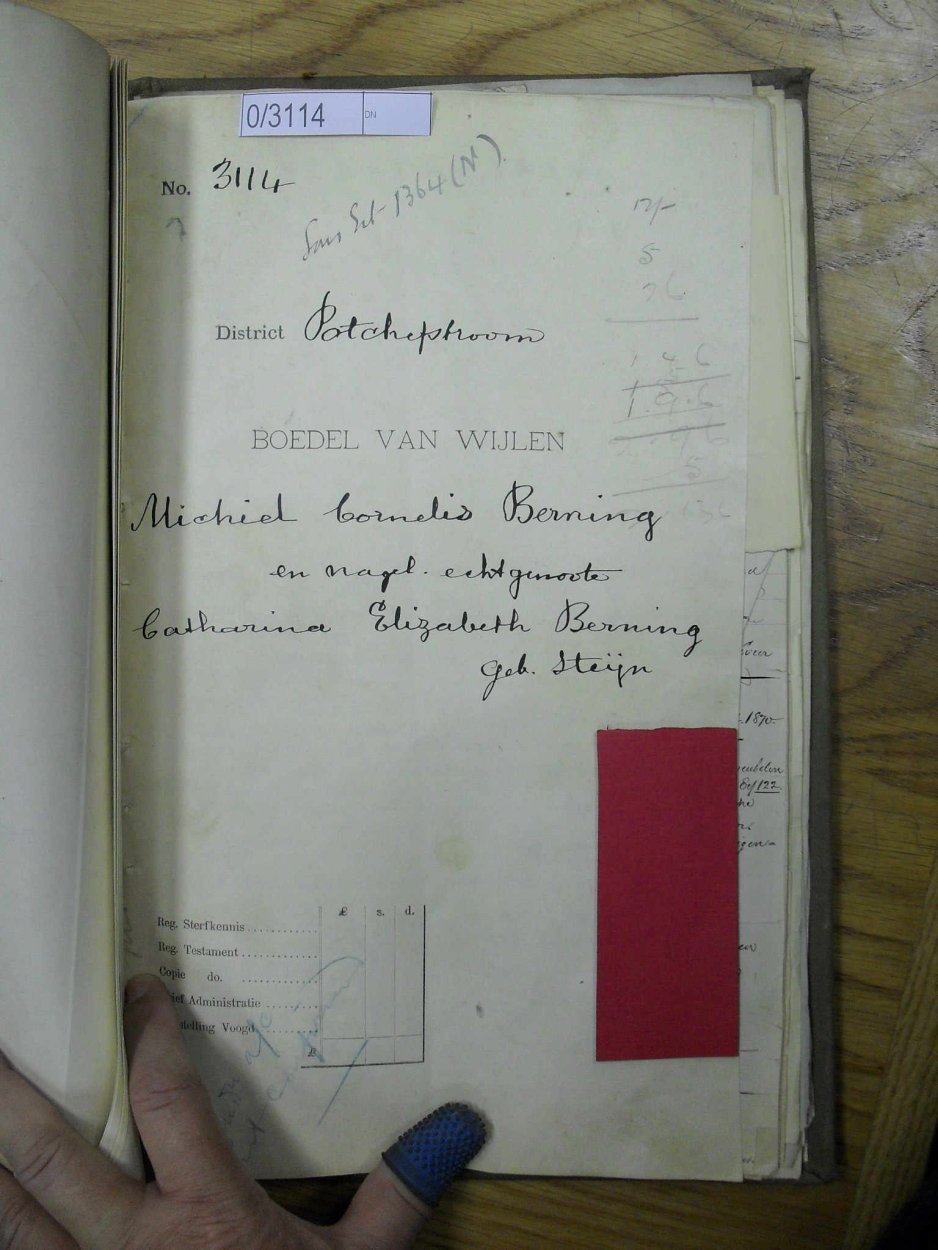 0/3114 DN
No. 3114
1364 (N).
12/-
5
District Potchefstroom
1 4 6
1. 8. 6
BOEDEL VAN WIJLEN
5
Michiel Cornelis Berning
en nagel. echtgenoote
Catharina Elizabeth Berning
geb. Steijn
1870
122
£ s. d.
Reg. Sterfkennis
Reg. Testament
Copie do.
ief Administratie
telling Voogd
£